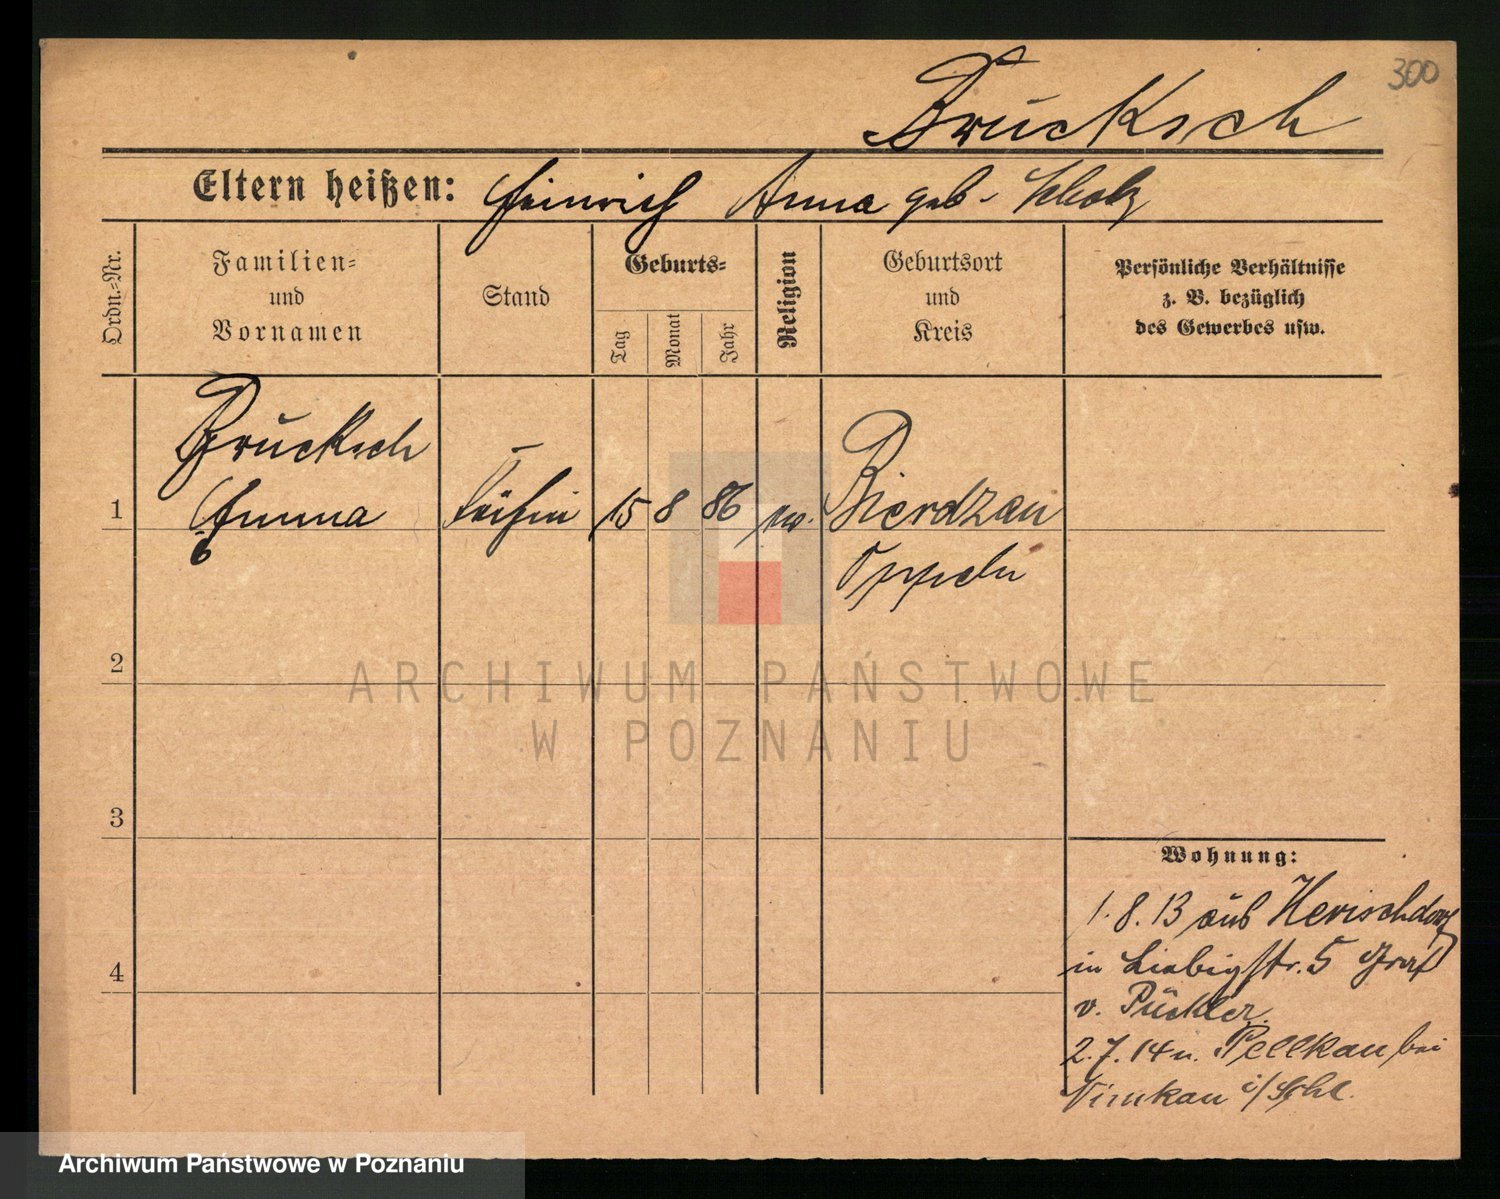 300
Brucksch
Eltern heißen: Heinrich Anna geb. Scholz
Ordn.-Nr.
Familien-
und
Vornamen
Stand
Geburts-
Tag
Monat
Jahr
Religion
Geburtsort
und
Kreis
Persönliche Verhältnisse
z. B. bezüglich
des Gewerbes usw.
Brucksch
1 Emma 15 8 86 ev. Bierdzan
Oppeln
2
ARCHIWUM PAŃSTWOWE
W POZNANIU
3
Wohnung:
1.8.13 aus Herischdorf
in Liebigstr. 5 Graf
v. Pückler.
4
2.7.14 n. Pellkau bei
Nimkau i/Schl.
Archiwum Państwowe w Poznaniu